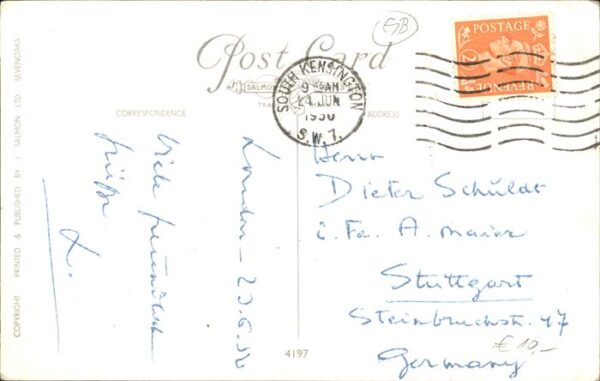 GB
Post Card
SALMON
CORRESPONDENCE
ADDRESS
SOUTH KENSINGTON
9 - AM
24 JUN
1950
S.W.7.
POSTAGE
2
REVENUE
London - 23.6.50
Viele freundliche
Grüße
L.
Herrn
Dieter Schuldt
i. Fa. A. Maier
Stuttgart
Steinbruchst. 47
Germany
€ 10,-
4197
COPYRIGHT PRINTED & PUBLISHED BY J. SALMON LTD SEVENOAKS